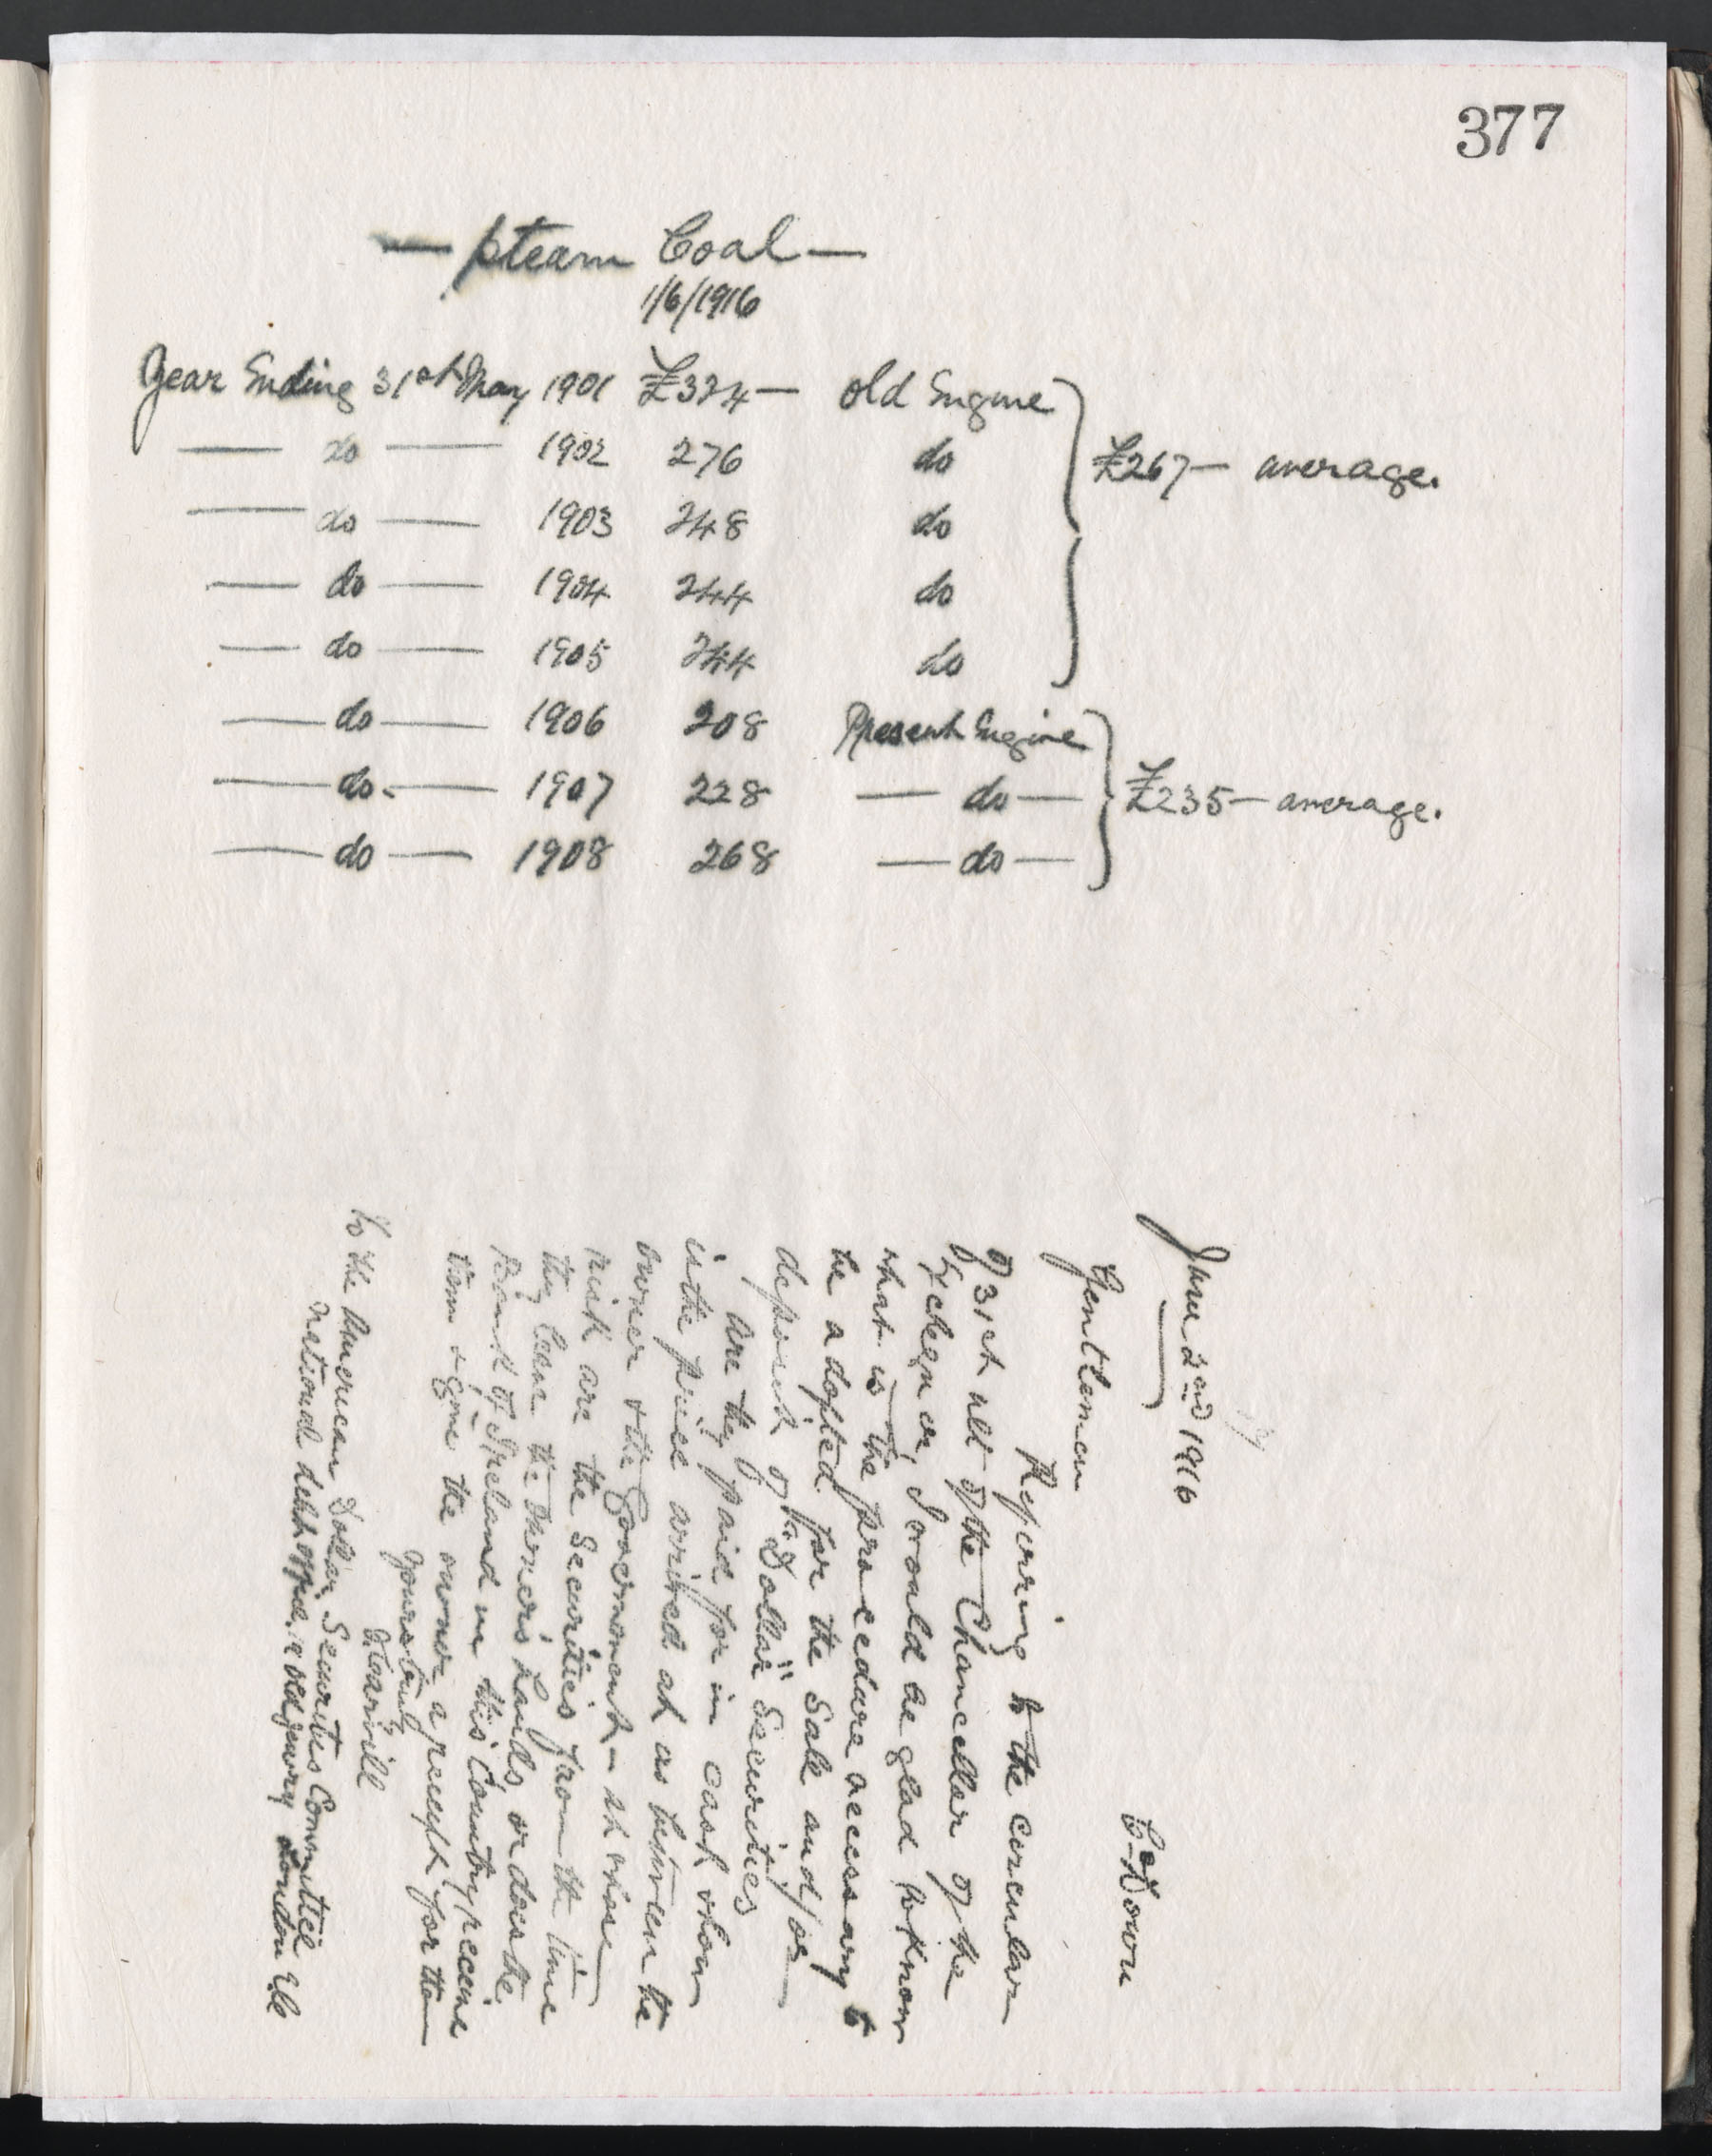 377
— Steam Coal —
1/6/1916
Year Ending 31st May 1901 £324 — Old Engine
— do — 1902 276 do
£267 — average.
— do — 1903 248 do
— do — 1904 244 do
— do — 1905 244 do
— do — 1906 208 Present Engine
— do — 1907 228 — do —
£235 — average.
— do — 1908 268 — do —
Co Down
June 2nd 1916
Gentlemen
Referring to the circular
of 31st ult of the Chancellor of the
Exchequer, I would be glad to know
what is the procedure necessary to
be adopted for the Sale and/or
deposit of "Dollar" Securities
Are they paid for in cash when
is the price arrived at as between the
owner & the Government - at whose
risk are the Securities from the time
they leave the owner's hands, or does the
Bank of Ireland in this Country receive
them & give the owner a receipt for them
Yours truly
To the American Dollar Securities Committee
National debt office, 19 old Jewry London E.C.